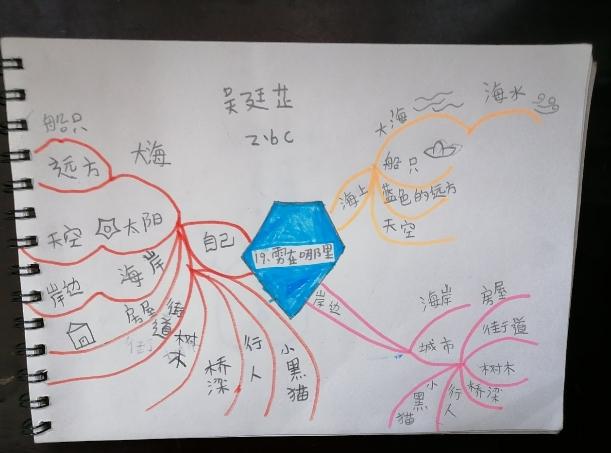 吴廷芷
2.6C
19.雾在哪里
自己
大海
船只
远方
天空
太阳
海岸
岸边
房屋
街道
街
树木
桥梁
行人
小黑猫
海上
大海
海水
船只
蓝色的远方
天空
岸边
海岸
城市
房屋
街道
树木
桥梁
行人
小黑猫